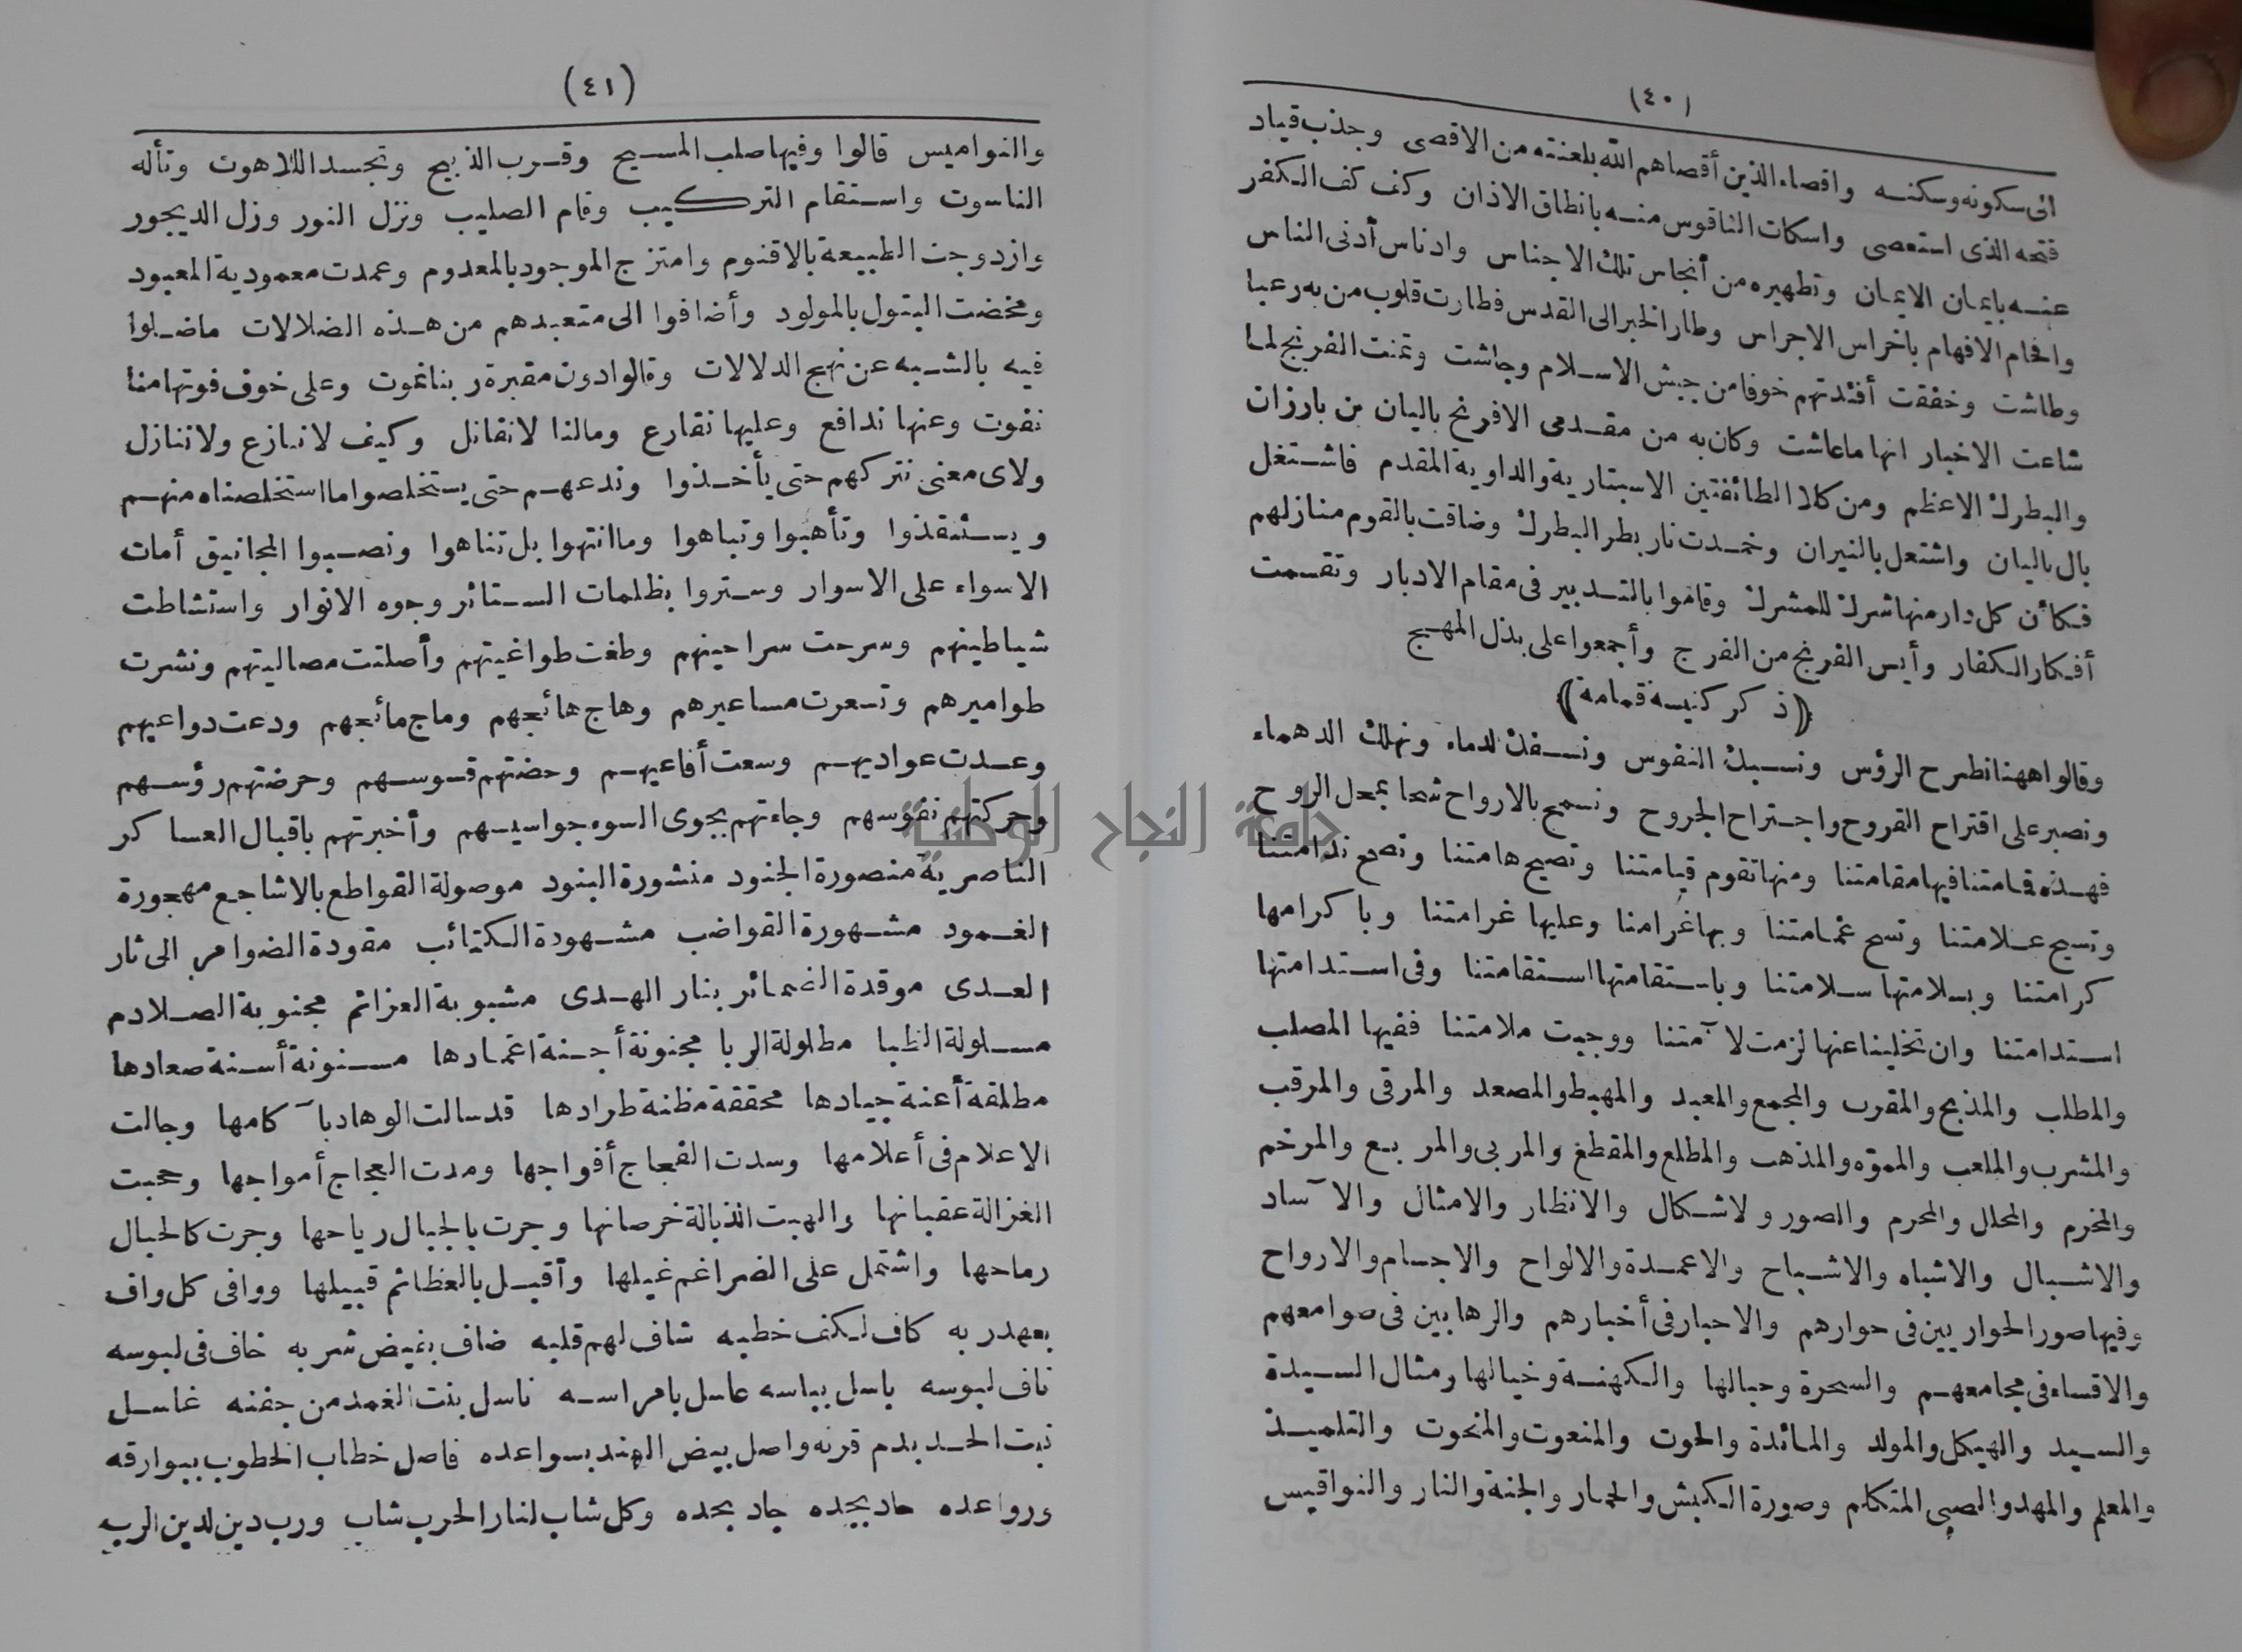 (٤٠)
الى سكونه وسكنه واقصاء الذين أقصاهم الله بلعنته من الاقصى وجذب قياد
فتحه الذى استعصى واسكات الناقوس منه بانطاق الاذان وكف كف الكفر
عنه بايمان الايمان وتطهيره من أنجاس تلك الاجناس وادناس أدنى الناس
وافحام الافهام باخراس الاجراس وطار الخبر الى القدس فطارت قلوب من به رعبا
وطاشت وخفقت أفئدتهم خوفا من جيش الاسلام وجاشت وتمنت الفرنج لما
شاعت الاخبار انها ما عاشت وكان به من مقدمى الافرنج باليان بن بارزان
والبطرك الاعظم ومن كلا الطائفتين الاسبتارية والداوية المقدم فاشتغل
بال باليان واشتعل بالنيران وخمدت نار بطر البطرك وضاقت بالقوم منازلهم
فكأن كل دار منها شرك للمشرك وقاموا بالتدبير فى مقام الادبار وتقسمت
أفكار الكفار وأيس الفرنج من الفرج وأجمعوا على بذل المهج
﴿ذكر كنيسة قمامة﴾
وقالوا ههنا نطرح الرؤس ونسبك النفوس ونسفك لدماء ونهلك الدهماء
ونصبر على اقتراح القروح واجتراح الجروح ونسمح بالارواح شحا بمحل الروح
فهذه قمامتنا فيها مقامتنا ومنها تقوم قيامتنا وتصيح هامتنا وتصح ندامتنا
وتسيح علامتنا وتسح غمامتنا وبها غرامنا وعليها غرامتنا وباكرامها
كرامتنا وبسلامتها سلامتنا وباستقامتها استقامتنا وفى استدامتها
استدامتنا وان تخلينا عنها لزمت لآمتنا ووجبت ملامتنا ففيها المصلب
والمطلب والمذبح والمقرب والمجمع والمعبد والمهبط والمصعد والمرقى والمرقب
والمشرب والملعب والمموّه والمذهب والمطلع والمقطع والمربى والمربع والمرخم
والمخرم والمحلل والمحرم والصور ولاشكال والانظار والامثال والآساد
والاشبال والاشباه والاشباح والاعمدة والالواح والاجسام والارواح
وفيها صور الحواريين فى حوارهم والاحبار فى أخبارهم والرهابين فى صوامعهم
والاقساء فى مجامعهم والسحرة وحبالها والكهنة وخيالها ومثال السيدة
والسيد والهيكل والمولد والمائدة والحوت والمنعوت والمنحوت والتلميذ
والمعلم والمهد والصبى المتكلم وصورة الكبش والحمار والجنة والنار والنواقيس
(٤١)
والنواميس قالوا وفيها صلب المسيح وقرب الذبيح وتجسد اللاهوت وتأله
الناسوت واستقام التركيب وقام الصليب ونزل النور وزل الديجور
وازدوجت الطبيعة بالاقنوم وامتزج الموجود بالمعدوم وعمدت معمودية المعبود
ومخضت البتول بالمولود وأضافوا الى متعبدهم من هذه الضلالات ما ضلوا
فيه بالشبه عن نهج الدلالات وقالوا دون مقبرة ربنا نموت وعلى خوف فوتها منا
نفوت وعنها ندافع وعليها نقارع ومالنا لا نقاتل وكيف لا ننازع ولا ننازل
ولاى معنى نتركهم حتى يأخذوا وندعهم حتى يستخلصوا ما استخلصناه منهم
ويستنقذوا وتأهبوا وتباهوا وما انتهوا بل تناهوا ونصبوا المجانيق أمات
الاسواء على الاسوار وستروا بظلمات الستائر وجوه الانوار واستشاطت
شياطينهم وسرحت سراحينهم وطغت طواغيتهم وأصلتت مصاليتهم ونشرت
طواميرهم وتسعرت مساعيرهم وهاج هائجهم وماج مائجهم ودعت دواعيهم
وعدت عواديهم وسعت أفاعيهم وحضتهم قسوسهم وحرضتهم رؤسهم
وحركتهم نفوسهم وجاءتهم بجوى السوء جواسيسهم وأخبرتهم باقبال العساكر
الناصرية منصورة الجنود منشورة البنود موصولة القواطع بالاشاجع مهجورة
الغمود مشهورة القواضب مشهودة الكتائب مقودة الضوامر الى ثار
العدى موقدة الضمائر بنار الهدى مشبوبة العزائم مجنوبة الصلادم
مسلولة الظبا مطلولة الربا مجنونة أجنة اغمادها مسنونة أسنة صعادها
مطلقة أعنة جيادها محققة مظنة طرادها قد سالت الوهاد بآكامها وجالت
الاعلام فى أعلامها وسدت الفجاج أفواجها ومدت العجاج أمواجها وحجبت
الغزالة عقبانها والهبت الذبالة خرصانها وجرت بالجبال رياحها وجرت كالحبال
رماحها واشتمل على الضراغم غيلها وأقبل بالعظائم قبيلها ووافى كل واف
بعهد ربه كاف لكف خطبه شاف لهم قلبه ضاف بفيض شربه خاف فى لبوسه
ناف لبوسه باسل بباسه عاسل بامراسه ناسل بنت الغمد من جفنه غاسل
نبت الحد بدم قرنه واصل بيض الهند بسواعده فاصل خطاب الخطوب ببوارقه
ورواعده حاد بجده جاد بحده وكل شاب لنار الحرب شاب ورب دين لدين الرب
جامعة النجاح الوطنية